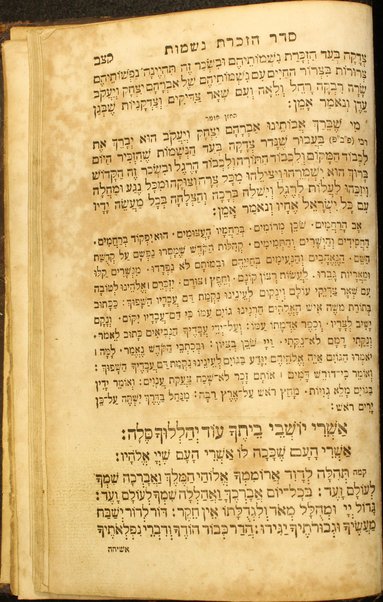 סדר הזכרת נשמות
קצב
צדקה בעד הזכרת נשמותיהם ובשכר זה תהיינה נפשותיהם
צרורות בצרור החיים עם נשמותיהם של אברהם יצחק ויעקב
שרה רבקה רחל ולאה ועם שאר צדיקים וצדקניות שבגן
עדן ונאמר אמן:
החזן אומר
מי שברך אבותינו אברהם יצחק ויעקב הוא יברך את
(פ׳ב׳פ׳) בעבור שנדר צדקה בעד הנשמות שהזכיר היום
לכבוד המקום ולכבוד התורה ולכבוד הרגל ובשכר זה הקדוש
ברוך הוא ישמרהו ויצילהו מכל צרה וצוקה ומכל נגע ומחלה
ויזכהו לעלות לרגל וישלח ברכה והצלחה בכל מעשה ידיו
עם כל ישראל אחיו ונאמר אמן:
אב הרחמים, שכן מרומים, ברחמיו העצומים, הוא יפקוד ברחמים,
החסידים והישרים והתמימים, קהלות הקדש שמסרו נפשם על קדשת
השם, הנאהבים והנעימים בחייהם ובמותם לא נפרדו, מנשרים קלו
ומאריות גברו, לעשות רצון קונם, וחפץ צורם, יזכרם אלהינו לטובה
עם שאר צדיקי עולם וינקום לעינינו נקמת דם עבדיו השפוך: ככתוב
בתורת משה איש האלהים הרנינו גוים עמו כי דם עבדיו יקום, ונקם
ישיב לצריו, וכפר אדמתו עמו: ועל ידי עבדיך הנביאים כתוב לאמר,
ונקיתי דמם לא נקיתי, ויי שוכן בציון: ובכתבי הקדש נאמר, למה
יאמרו הגוים איה אלהיהם יודע בגוים לעינינו נקמת דם עבדיך השפוך:
ואומר כי דורש דמים אותם זכר לא שכח צעקת ענוים: ואומר ידין
בגוים מלא גויות, מחץ ראש על ארץ רבה: מנחל בדרך ישתה על כן
ירים ראש:
אשרי יושבי ביתך עוד יהללוך סלה:
אשרי העם שככה לו אשרי העם שיי אלהיו:
קמה תהלה לדוד ארוממך אלוהי המלך ואברכה שמך
לעולם ועד: בכל יום אברכך ואהללה שמך לעולם ועד:
גדול יי ומהלל מאד ולגדלתו אין חקר: דור לדור ישבח
מעשיך וגבורתיך יגידו: הדר כבוד הודך ודברי נפלאתיך
אשיחה